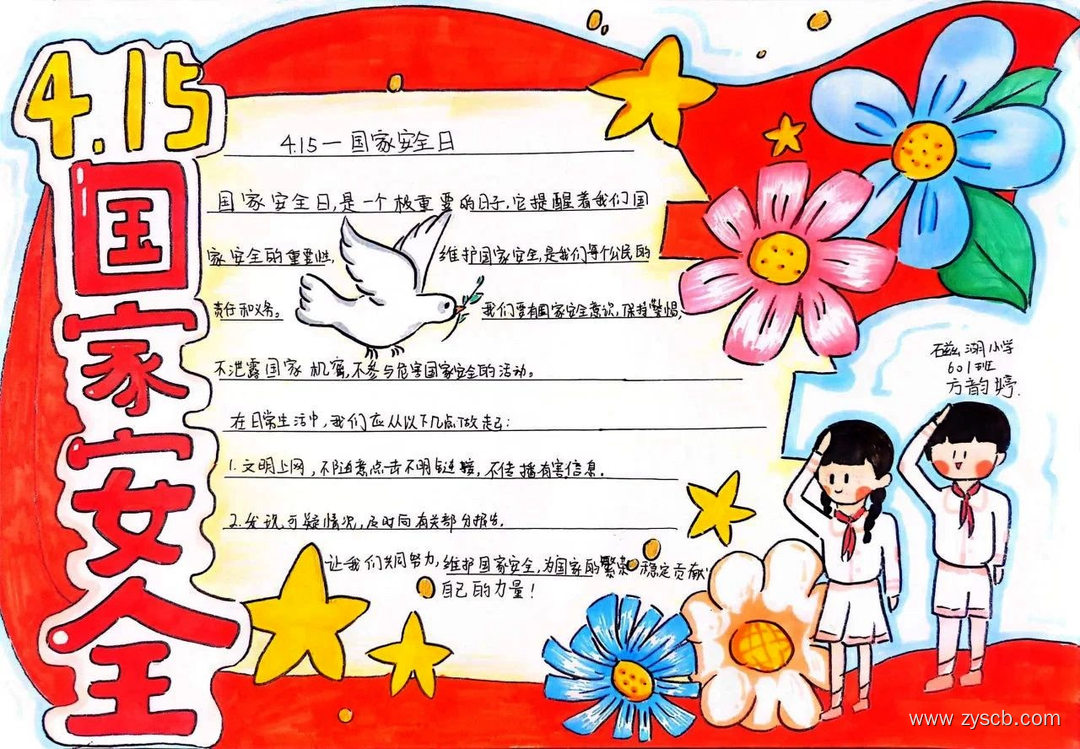 4.15
国家安全
4.15—国家安全日
国家安全日,是一个极重要的日子,它提醒着我们国
家安全的重要性,维护国家安全,是我们每个公民的
责任和义务。我们要有国家安全意识,保持警惕,
不泄露国家机密,不参与危害国家安全的活动。
在日常生活中,我们应从以下几点做起:
1.文明上网,不随意点击不明链接,不传播有害信息。
2.发现可疑情况,及时向有关部分报告。
让我们共同努力,维护国家安全,为国家的繁荣稳定贡献
自己的力量!
磁湖小学
601班
方韵婷
www.zyscb.com